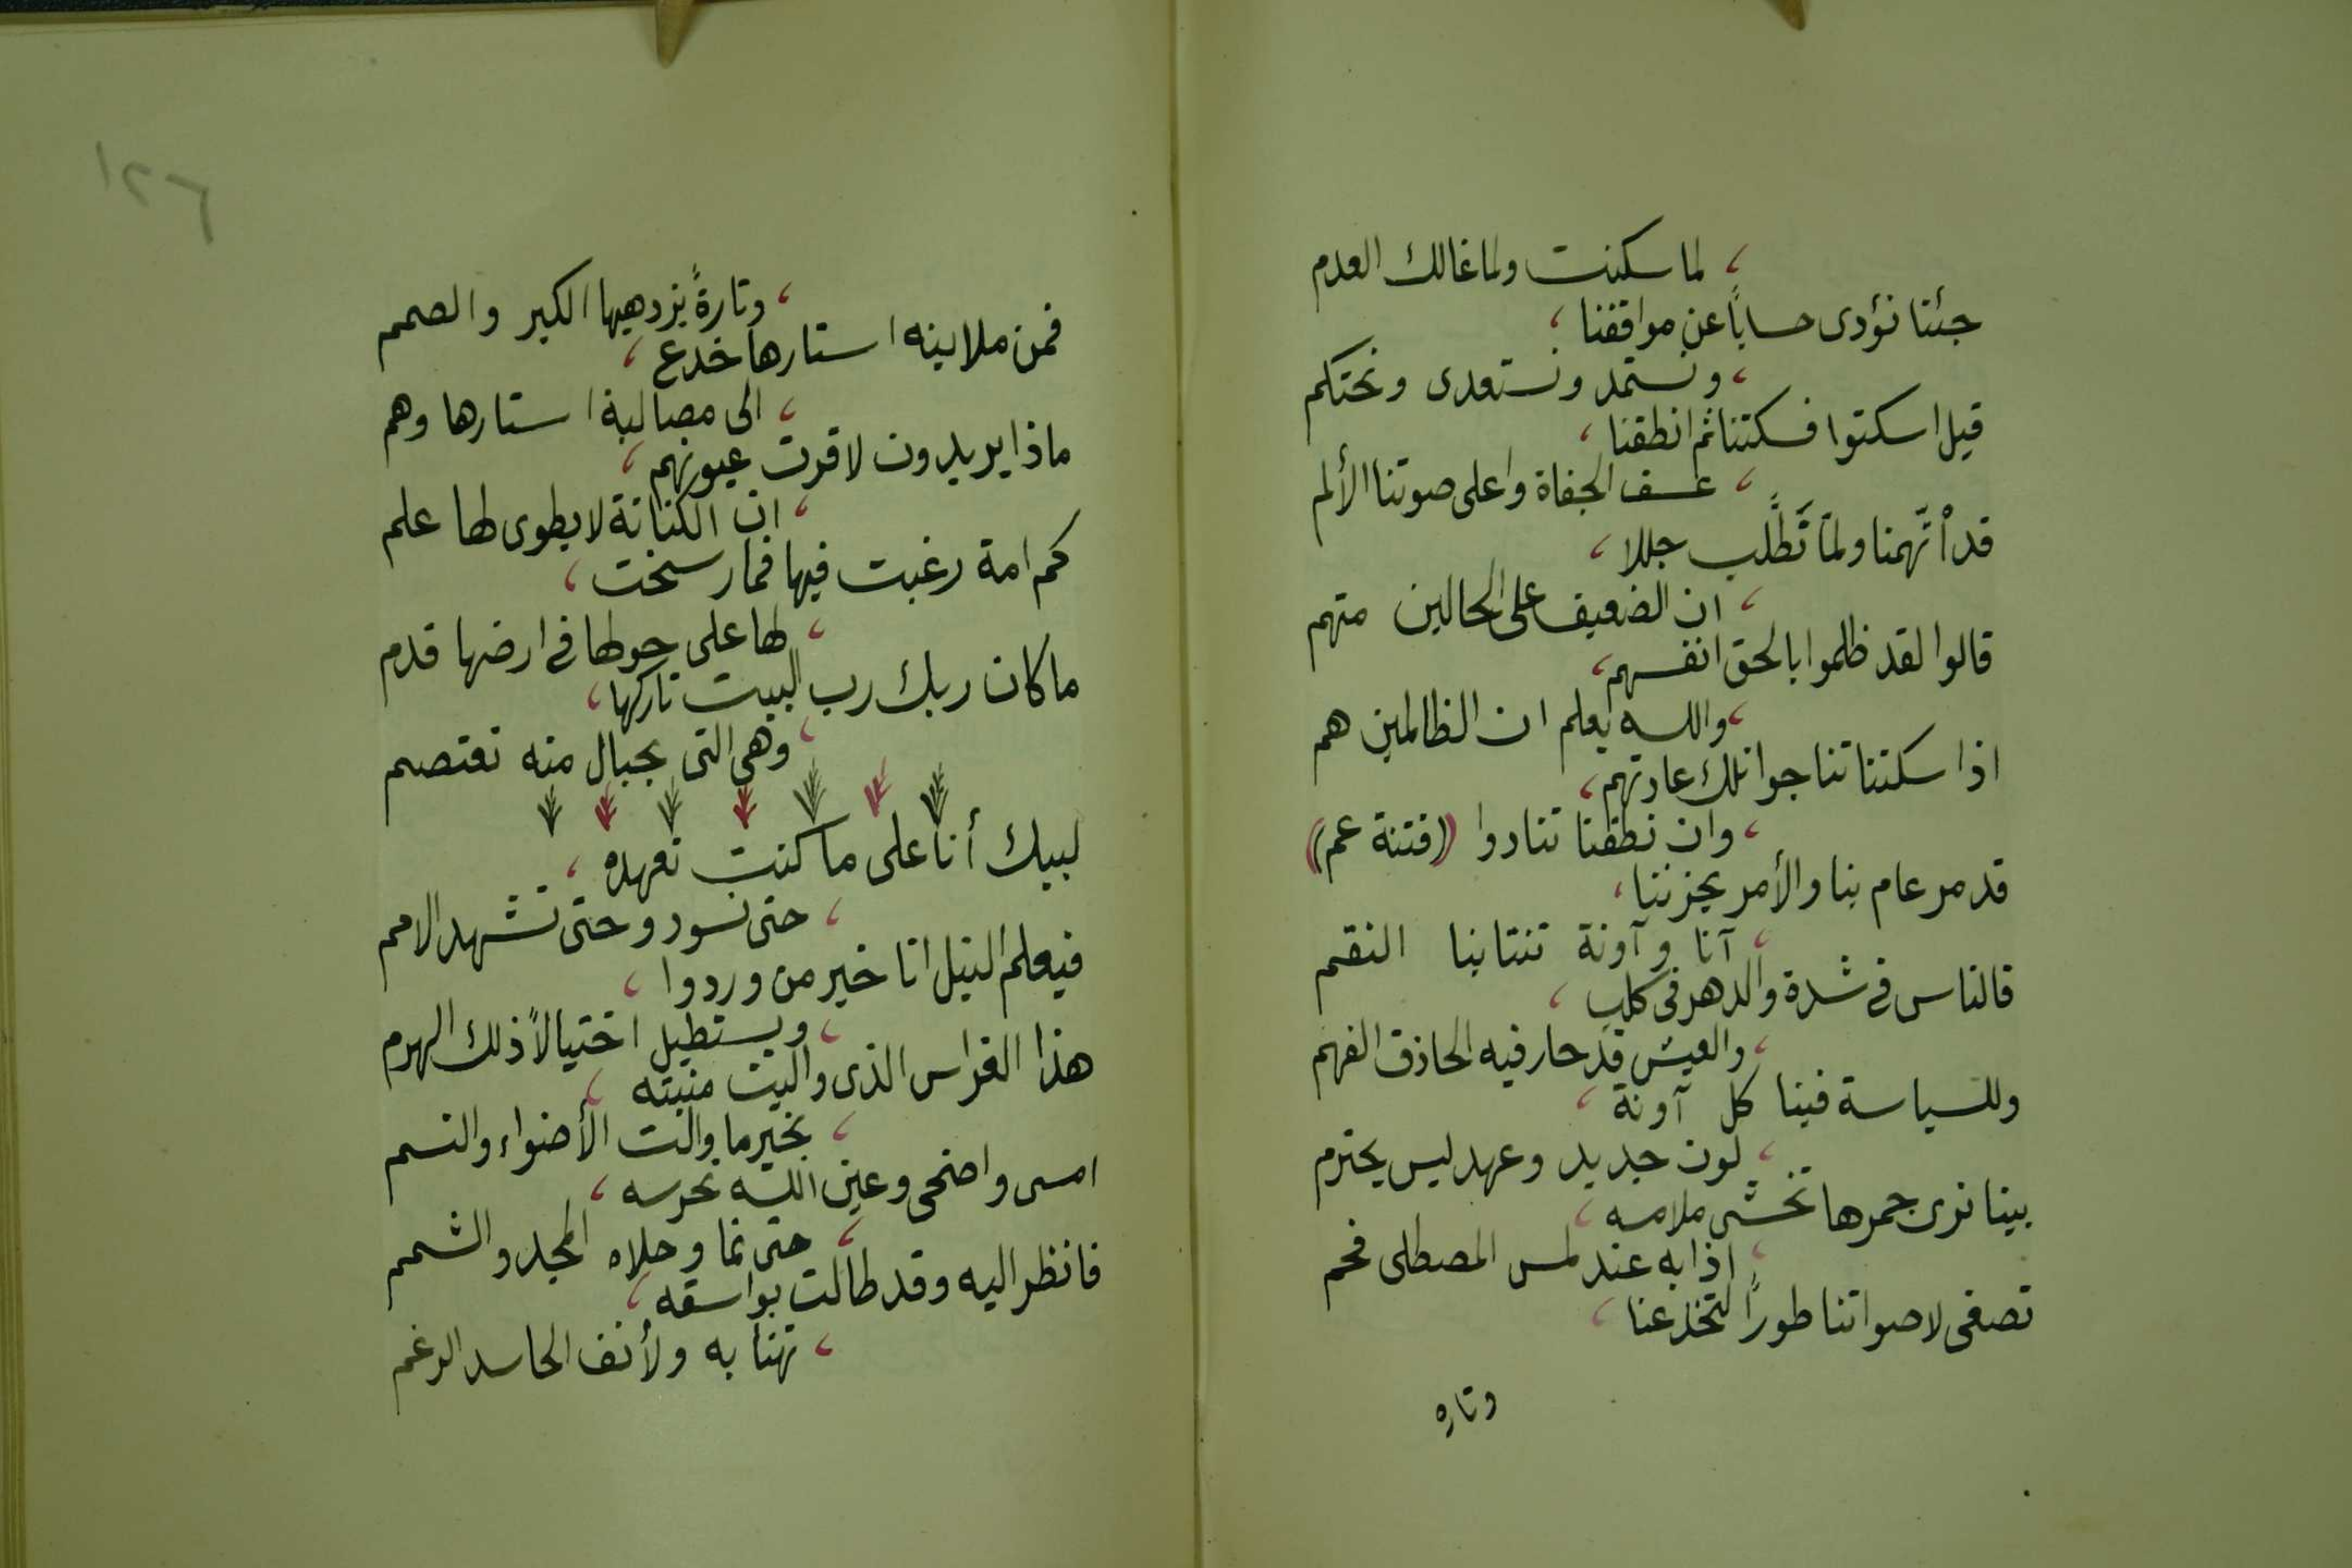 لما سكنت ولما غالك العدم
جئنا نؤدى حسابًا عن مواقفنا ،
ونستمد ونستعدى ونحتكم
قيل اسكتوا فسكتنا ثم انطقنا ،
عسف الجفاة واعلى صوتنا الألم
قد اتّهمنا ولمّا نَطّلب جللا ،
ان الضعيف على الحالين متهم
قالوا لقد ظلموا بالحق انفسهم ،
والله يعلم ان الظالمين هم
اذا سكتنا تناجوا تلك عادتهم ،
وان نطقنا تنادوا ((فتنة عمم))
قد مر عام بنا والأمر يحزننا ،
آنا وآونة تنتابنا النقم
فالناس فى شدة والدهر فى كلب ،
والعيش قد حار فيه الحاذق الفهم
وللسياسة فينا كل آونة ،
لون جديد وعهد ليس يحترم
بينا نرى جمرها تخشى ملامسه ،
اذا به عند لمس المصطلى فحم
تصغى لاصواتنا طورًا لتخدعنا ،
وتاره
١٢٦
وتارةً يزدهيها الكبر والصمم
فمن ملاينه استارها خدع ،
الى مصالبة استارها وهم
ماذا يريدون لا قرت عيونهم ،
ان الكنانة لا يطوى لها علم
كم امة رغبت فيها فما رسخت ،
لها على حولها فى ارضها قدم
ما كان ربك رب البيت تاركها ،
وهى التى بحبال منه تعتصم
لبيك أنا على ما كنت تعهده ،
حتى نسود وحتى تشهد الامم
فيعلم النيل انا خير من وردوا ،
ويستطيل اختيالاً ذلك الهرم
هذا الغراس الذى واليت منبته ،
بخير ما والت الأضواء والنسم
امسى واضحى وعين الله تحرسه ،
حتى نما وحلاه المجد والشمم
فانظر اليه وقد طالت بواسقه ،
تهنأ به ولأنف الحاسد الرغم